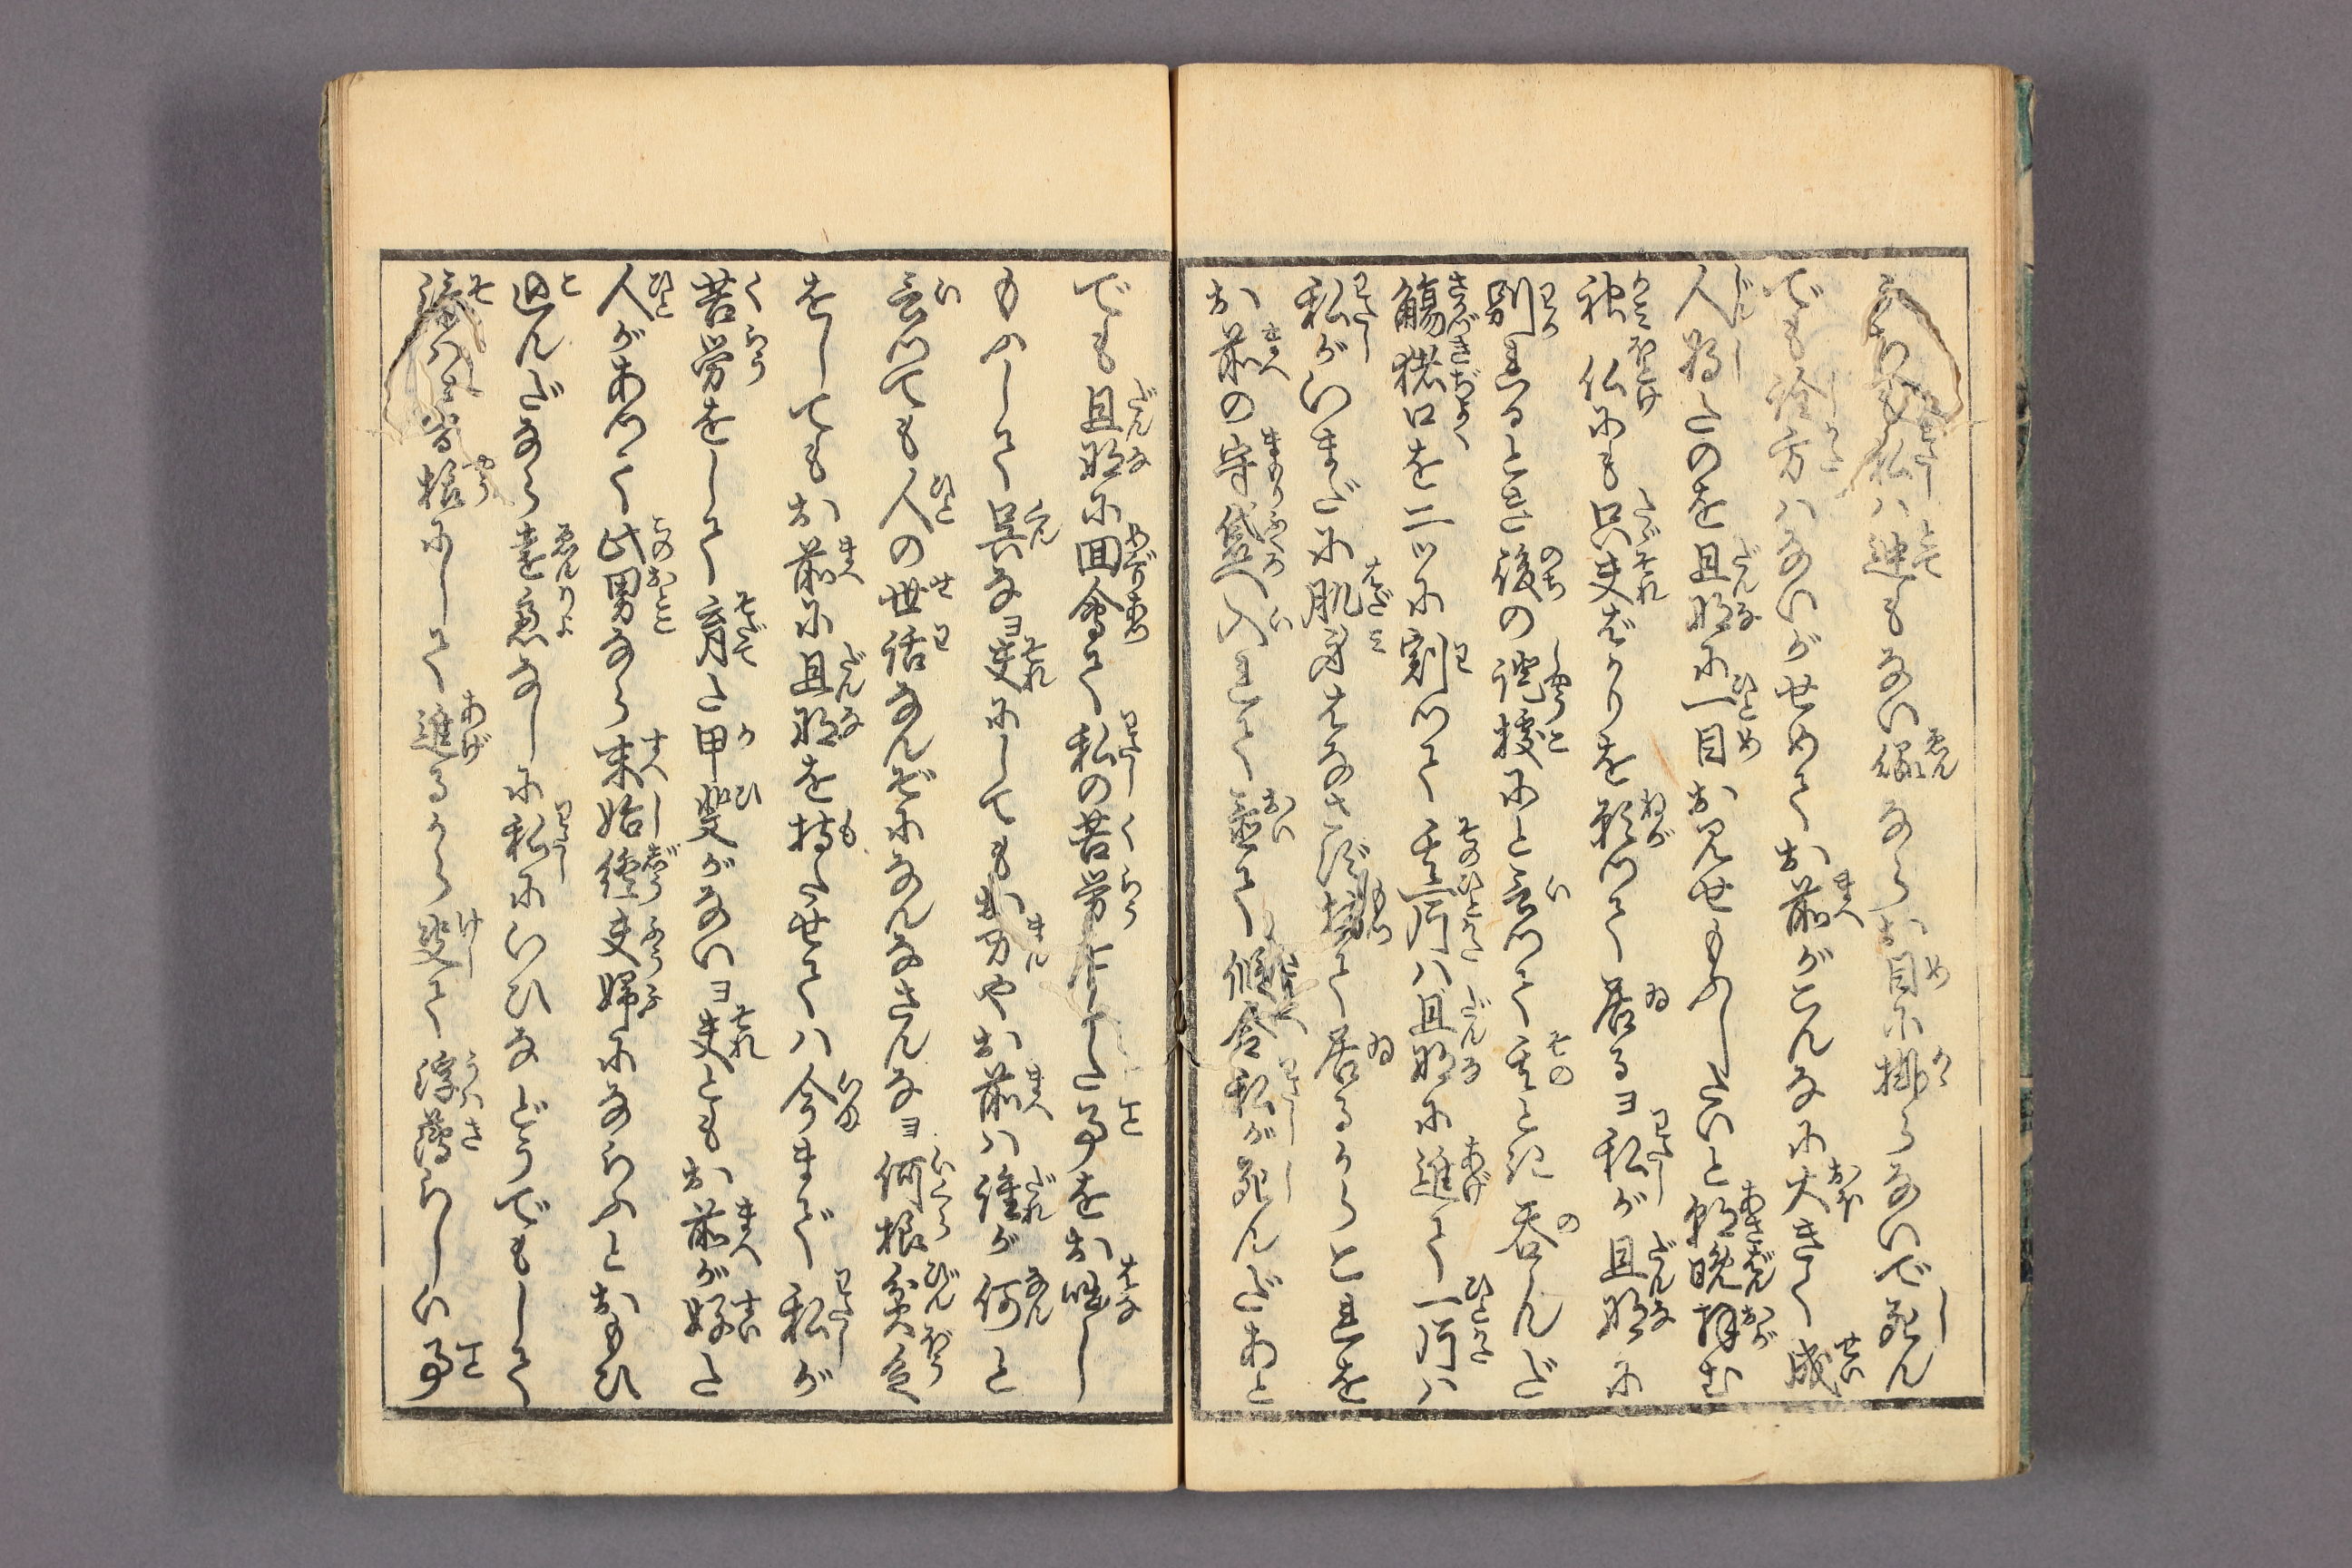 私ハ迚もない縁ならお目に掛らないで死ん
でも詮方ハないがせめてお前がこんなに大きく成
人したのを旦那に一目お見せ申したいと朝晩拝む
神仏にも只夫ばかりを願つて居るヨ私が旦那に
別れるとき後の證拠にと言つて其とき呑んだ
觴猪口を二ツに割つて其一片ハ旦那に進て一片ハ
私がいまだに肌身はなさず持て居るからこれを
お前の守袋へ入れて置て仮令私が死んだあと
でも旦那に囬會て私の苦労した事をお咄し
申して呉なヨ夫にしてもお前ハ誰が何と
言つても人の世話なんぞになんなさんなヨ何根貧乏
をしてもお前に旦那を持たせてハ今まで私が
苦労をして育た甲斐がないヨ夫ともお前が好た
人があつて此男なら末始終夫婦にならふとおもひ
込んだなら遠慮なしに私にいひなどうでもして
様にして進るから決て浮薄らしい事